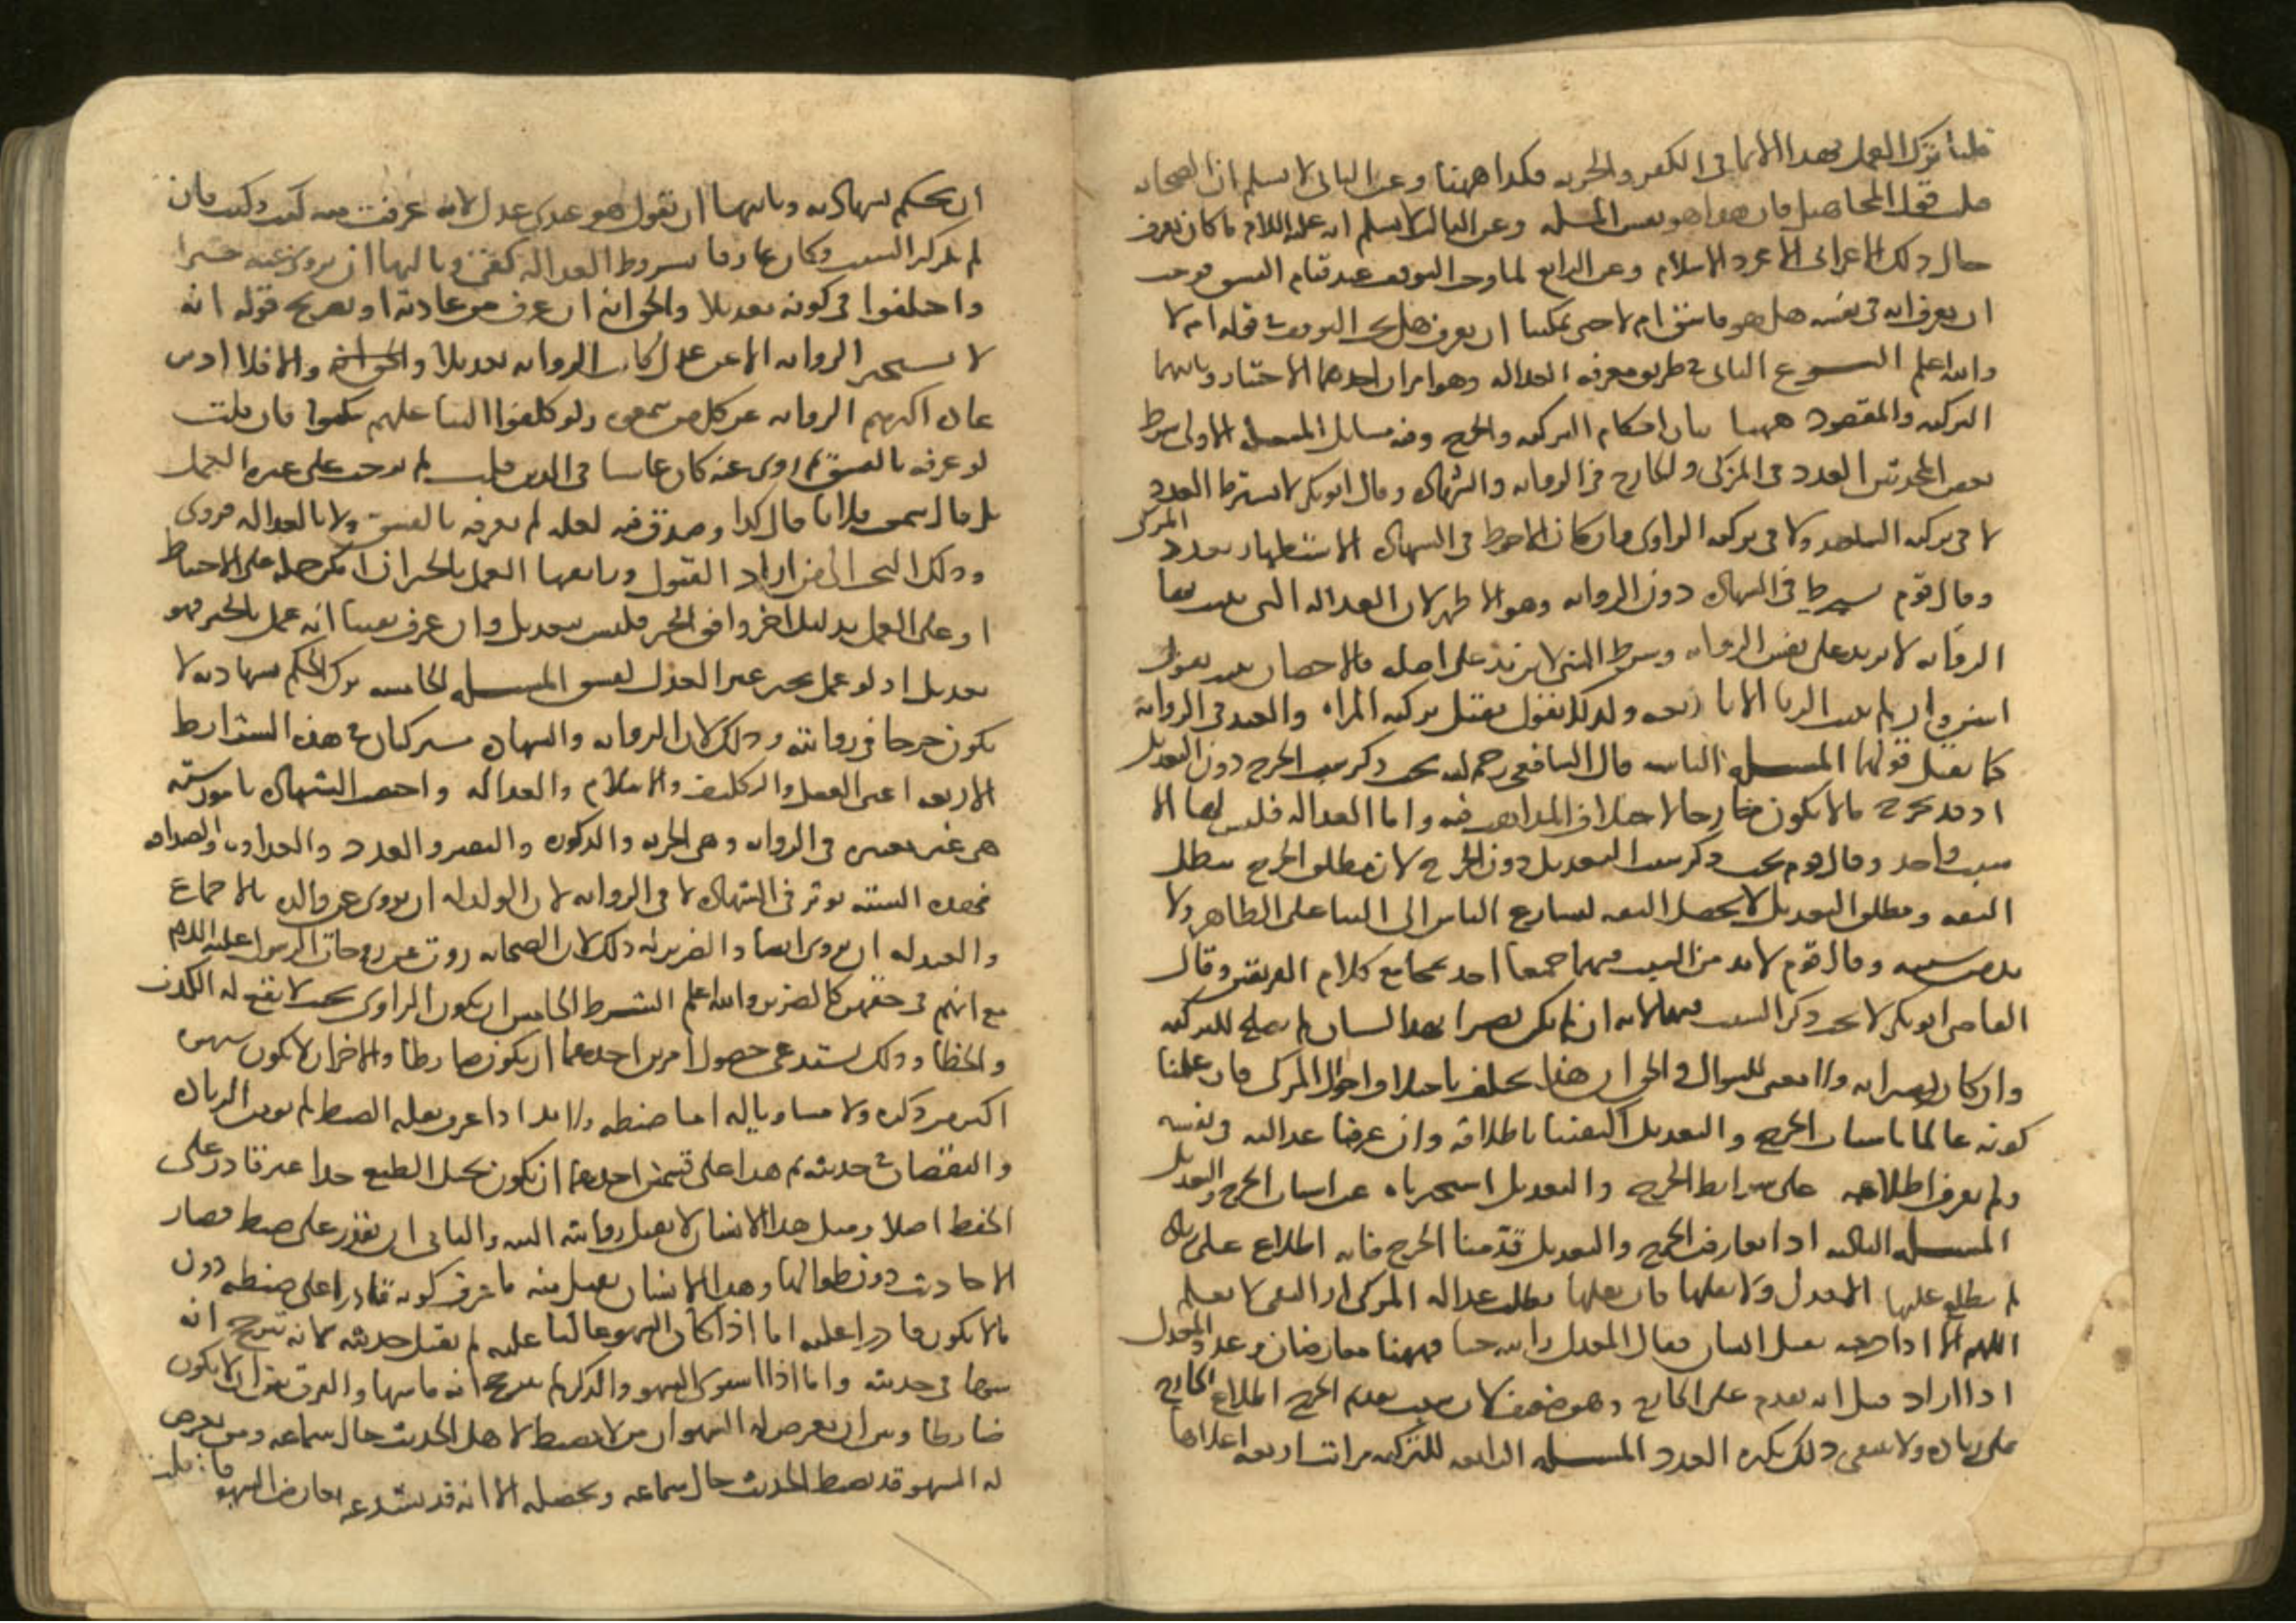 قلنا ترك العمل بهذا الاثما في الكفر والحرية فكذا ههنا وعن الثاني لا نسلم ان الصحابة
قبلت قول المجاهيل فان هذا هو نفس المسله وعن الثالث لا نسلم انه عليه السلام ما كان يعرف
حال ذلك الاعرابي الا مجرد الاسلام وعن الرابع لما وجب التوقف عند قيام الفسق فوجب
ان يعرف انه في نفسه هل هو فاسق ام لا حتى يمكننا ان يعرف هل يجب التوقف في قوله ام لا
والله اعلم النوع الثاني في طريق معرفة العدالة وهو امران احدهما الاختبار وثانيهما
التزكية والمقصود ههنا بيان احكام التزكية والجرح وفيه مسائل المسله الاولى شرط
بعض المحدثين العدد في المزكي والجارح في الرواية والشهادة وقال ابو بكر لا يشترط العدد
لا في تزكية الشاهد ولا في تزكية الراوي وان كان الاحوط في الشهادة الاستظهار بعدد المزكي
وقال قوم يشترط في الشهادة دون الرواية وهو الاظهر لان العدالة التي تثبت بها
الرواية لا تزيد على نفس الرواية وشرط الشي لا يزيد على اصله فالاحصان يثبت بقول
اثنين وان لم يثبت الزنا الا باربعة ولذلك نقول يقبل تزكية المراة والعبد في الرواية
كما يقبل قولهما المسله الثانية قال الشافعي رحمه الله يجب ذكر سبب الجرح دون التعديل
اذ قد يجرح بما لا يكون جارحا لاختلاف المذاهب فيه واما العدالة فليس لها الا
سبب واحد وقال قوم يجب ذكر سبب التعديل دون الجرح لان مطلق الجرح يبطل
الثقة ومطلق التعديل لا يحصل الثقة لتسارع الناس الى الثنا على الظاهر ولا
بد من سببه وقال قوم لا بد من السبب فيهما جميعا اخذ بمجامع كلام الفريقين وقال
القاضي ابو بكر لا يجب ذكر السبب فيهما لانه ان لم يكن بصيرا بهذا الشان لم يصلح للتزكية
وان كان بصيرا به فلا معنى للسوال والحق ان هذا يختلف باختلاف احوال المزكي فان علمنا
كونه عالما باسباب الجرح والتعديل اكتفينا باطلاقه وان عرفنا عدالته في نفسه
ولم يعرف اطلاعه على شرائط الجرح والتعديل استخبرناه عن اسباب الجرح والتعديل
المسله الثالثة اذا تعارض الجرح والتعديل قدمنا الجرح فانه اطلاع على زيادة
لم يطلع عليها المعدل ولا نفاها فان نفاها بطلت عدالة المزكي اذ النفي لا يعلم
اللهم الا اذا جرحه بقتل انسان فقال المعدل رايته حيا فههنا يتعارضان وعدد المعدل
اذا زاد قيل انه يقدم على الجارح وهو ضعيف لان سبب تقديم الجرح اطلاع الجارح
على زيادة ولا ينتفي ذلك بكثرة العدد المسله الرابعة للتزكية مراتب اربعة اعلاها
ان يحكم بشهادته وثانيها ان يقول هو عندي عدل لانه عرفت منه كيت وكيت فان
لم يذكر السبب وكان عارفا بشروط العدالة كفى وثالثها ان يروي عنه خبرا
واختلفوا في كونه تعديلا والحق انه ان عرف من عادته او بصريح قوله انه
لا يستجيز الرواية الا عن عدل كانت الرواية تعديلا والا فلا اذ من
عادة اكثرهم الرواية عن كل من سمعوه ولو كلفوا الثنا عليهم سكتوا فان قلت
لو عرفه بالفسق ثم روى عنه كان غاشا في الدين قلت لم يوجب على غيره العمل
بل قال سمعت فلانا قال كذا وصدق فيه لعله لم يعرفه بالفسق ولا بالعدالة فروى
ووكل البحث الى من اراد القبول ورابعها العمل بالخبر ان امكن حمله على الاحتياط
او على العمل بدليل اخر وافق الخبر فليس بتعديل وان عرف يقينا انه عمل بالخبر فهو
تعديل اذ لو عمل بخبر غير العدل لفسق المسله الخامسة ترك الحكم بشهادته لا
يكون جرحا في روايته وذلك لان الرواية والشهادة مشتركتان في هذه الشرائط
الاربعة اعني العقل والتكليف والاسلام والعدالة واختصت الشهادة بامور ستة
هي غير معتبرة في الرواية وهي الحرية والذكورة والبصر والعدد والعداوة والصداقة
فهذه الستة توثر في الشهادة لا في الرواية لان الولد له ان يروي عن والده بالاجماع
والعبد له ان يروي ايضا والضرير له ذلك لان الصحابة روت عن زوجات الرسول عليه السلام
مع انهم في حقهن كالضرير والله اعلم الشرط الخامس ان يكون الراوي بحيث لا يقع له الكذب
والخطا وذلك يستدعي حصول امرين احدهما ان يكون ضابطا والاخر ان لا يكون سهوه
اكثر من ذكره ولا مساويا له اما ضبطه فلانه اذا عرف بقلة الضبط لم تومن الزيادة
والنقصان في حديثه ثم هذا على قسمين احدهما ان يكون مختل الطبع جدا غير قادر على
الحفظ اصلا ومثل هذا الانسان لا يقبل روايته البتة والثاني ان يقدر على ضبط قصار
الاحاديث دون طوالها وهذا الانسان يقبل منه ما عرف كونه قادرا على ضبطه دون
ما لا يكون قادرا عليه اما اذا كان السهو غالبا عليه لم يقبل حديثه لانه يترجح انه
سها في حديثه واما اذا استوى السهو والذكر لم يترجح انه ما سها والفرق بين ان لا يكون
ضابطا وبين ان يعرض له السهو ان من لا يضبط لا يحصل الحديث حال سماعه ومن يعرض
له السهو قد يضبط الحديث حال سماعه ويحصله الا انه قد يشذ عنه بعارض السهو فان قلت